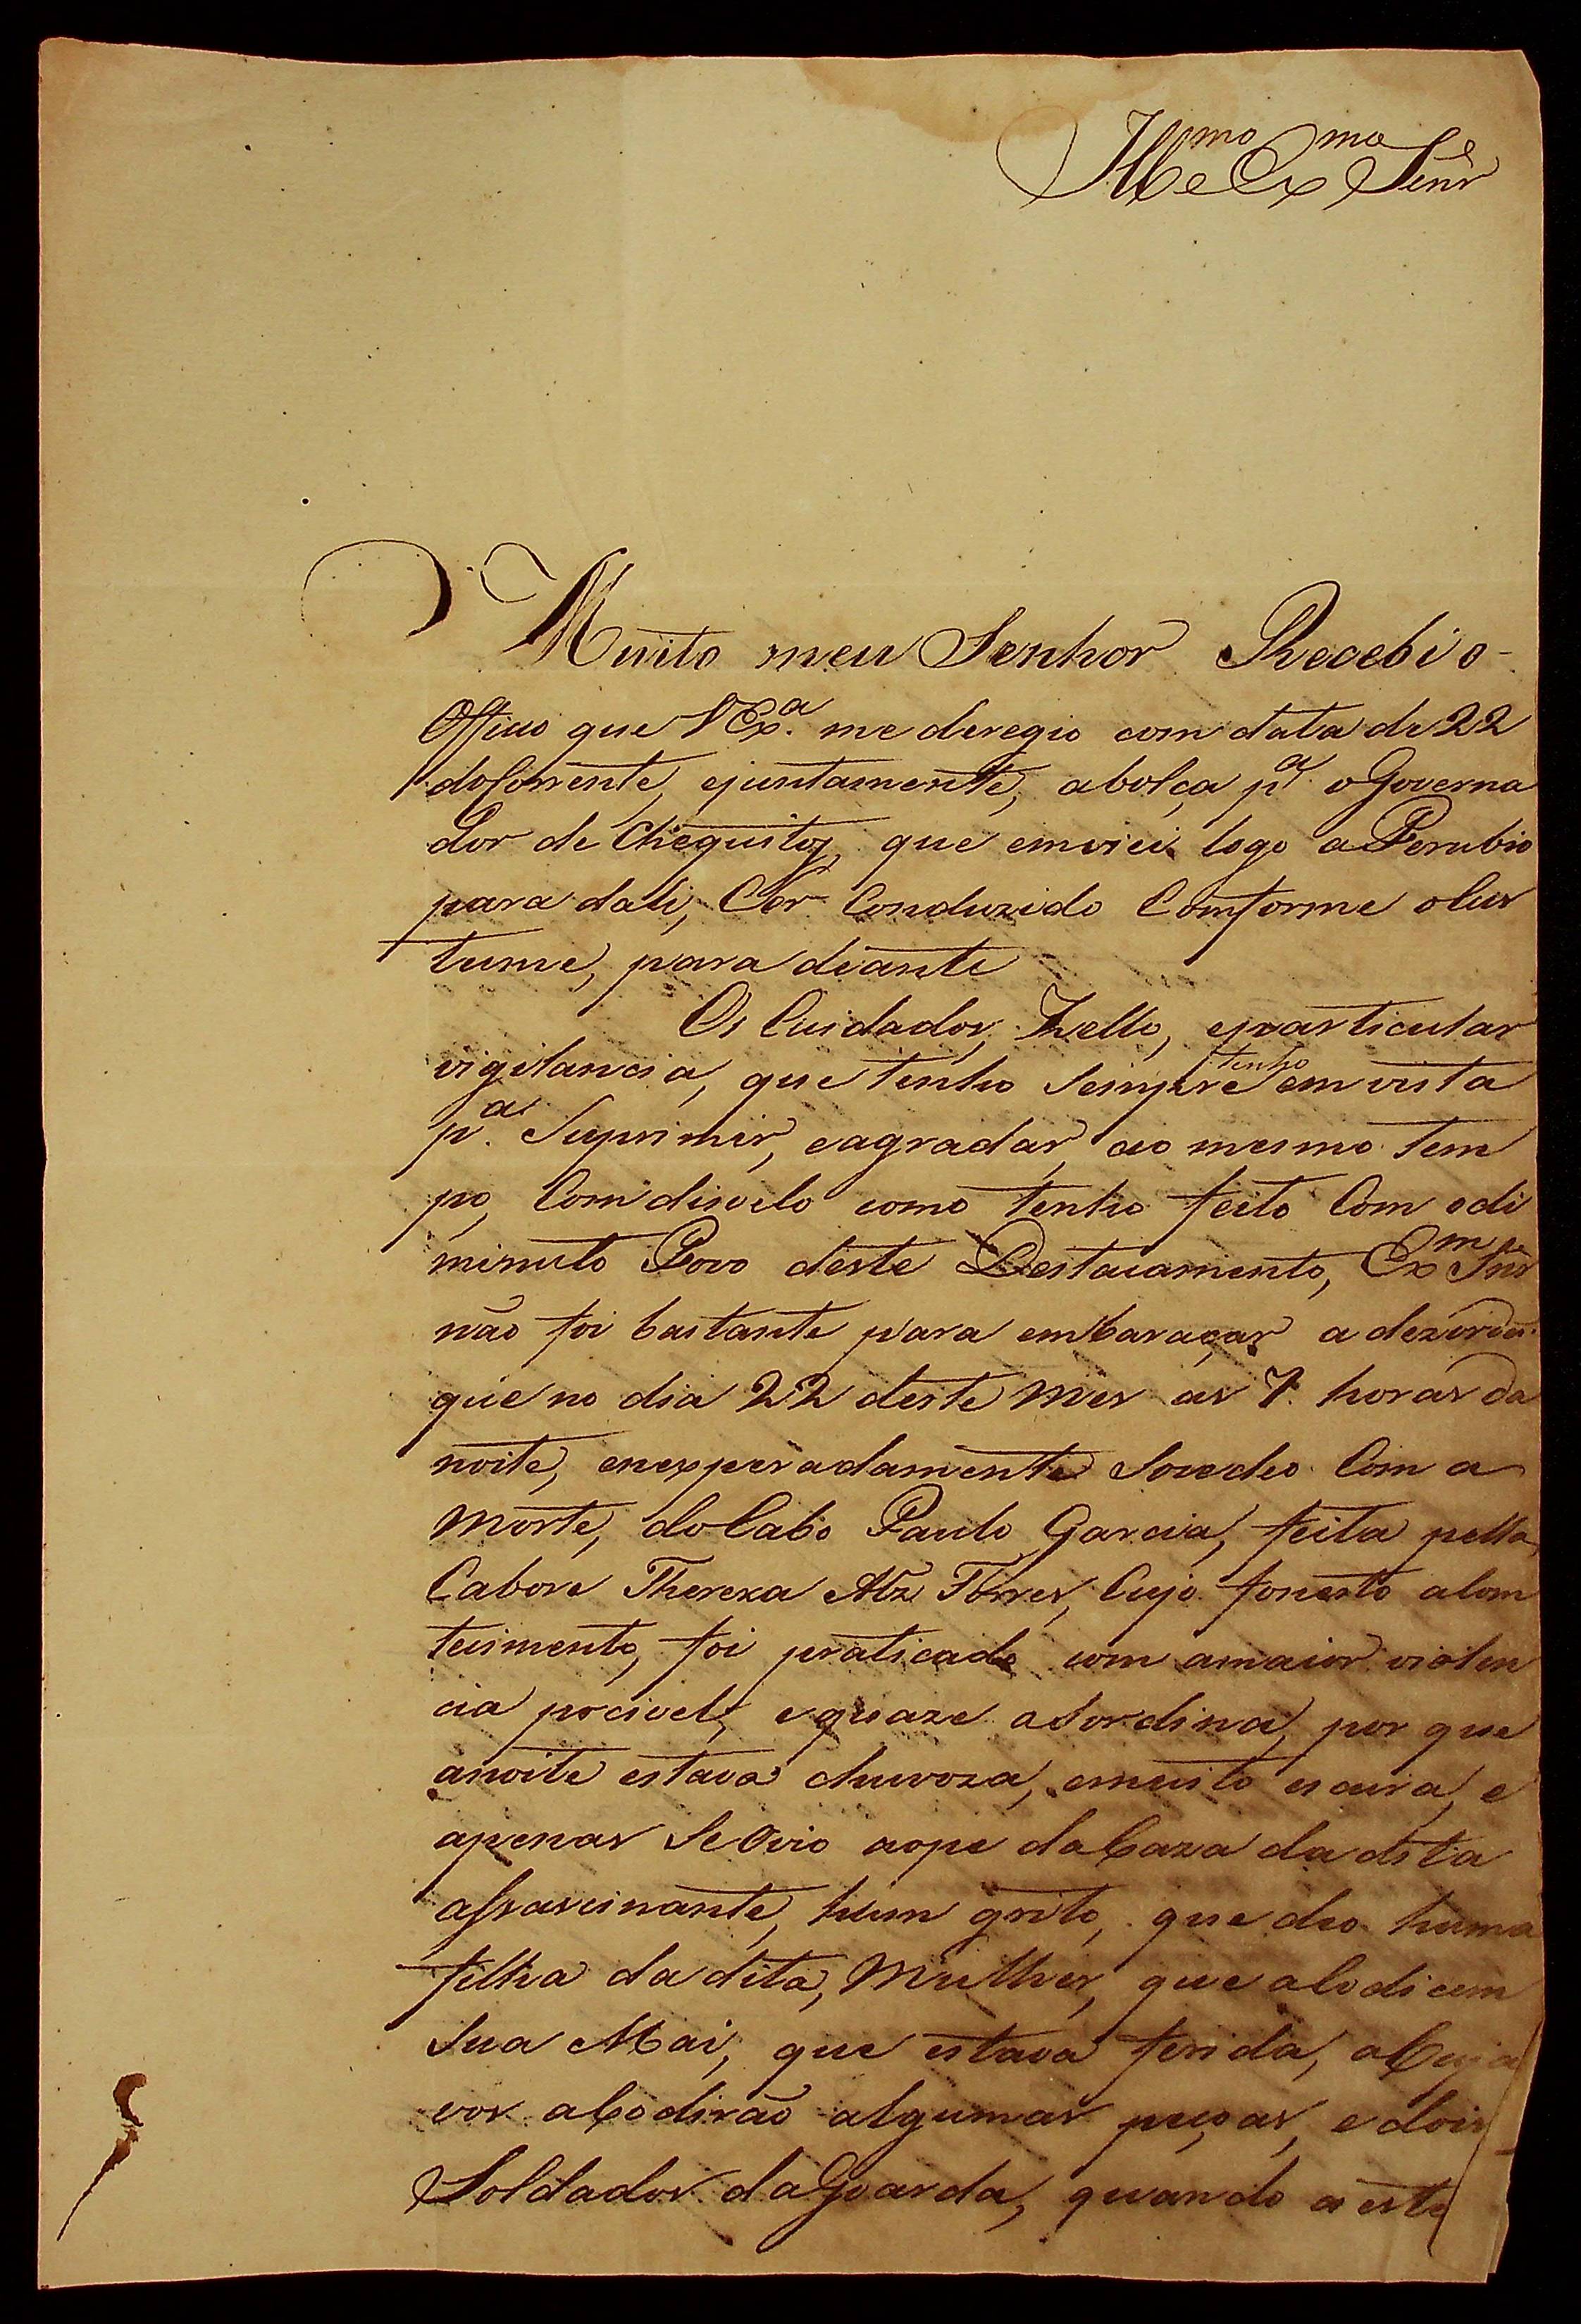 Illmo e Exmo Senr
Muito meu Senhor Recebi o
Officio que VExa. me deregio com data de 22
do Corrente, ejuntamente, abolça pa. o Governa
dor de Chequitos, que emviei logo a Perubio
para dali, Cer Conduzido Comforme o Cus
tume, para diante
Os Cuidados, Zello, eparticular
vigilancia, que tenho Sempre tenho em vista
pa. Suprimir, eagradar, ao mesmo tem
po, Com disvelo como tenho feito Com o di
minuto Povo deste Destacamento, Exmo Snr
não foi bastante para embaraçar a dezordem
que no dia 22 deste mes as 7. horas da
noite, enexperadamente Socedeo Com a
morte, do Cabo Paulo Garcia, feita pella
Cabore Thereza Alz Torres, Cujo fonesto acom
tecimento, foi praticado com amaior violen
cia pocivel, equaze asordina, por que
anoite estava chuvoza, emuito escura, e
apenas Se Ovio aope da Caza da dita
assascinante, hum grito, que deo huma
filha da dita, Mulher, que acodicem
Sua Mai, que estava ferida, a Cuja
vos aCodirão algumas peçoas, e dois
Soldados da Goarda, quando a este